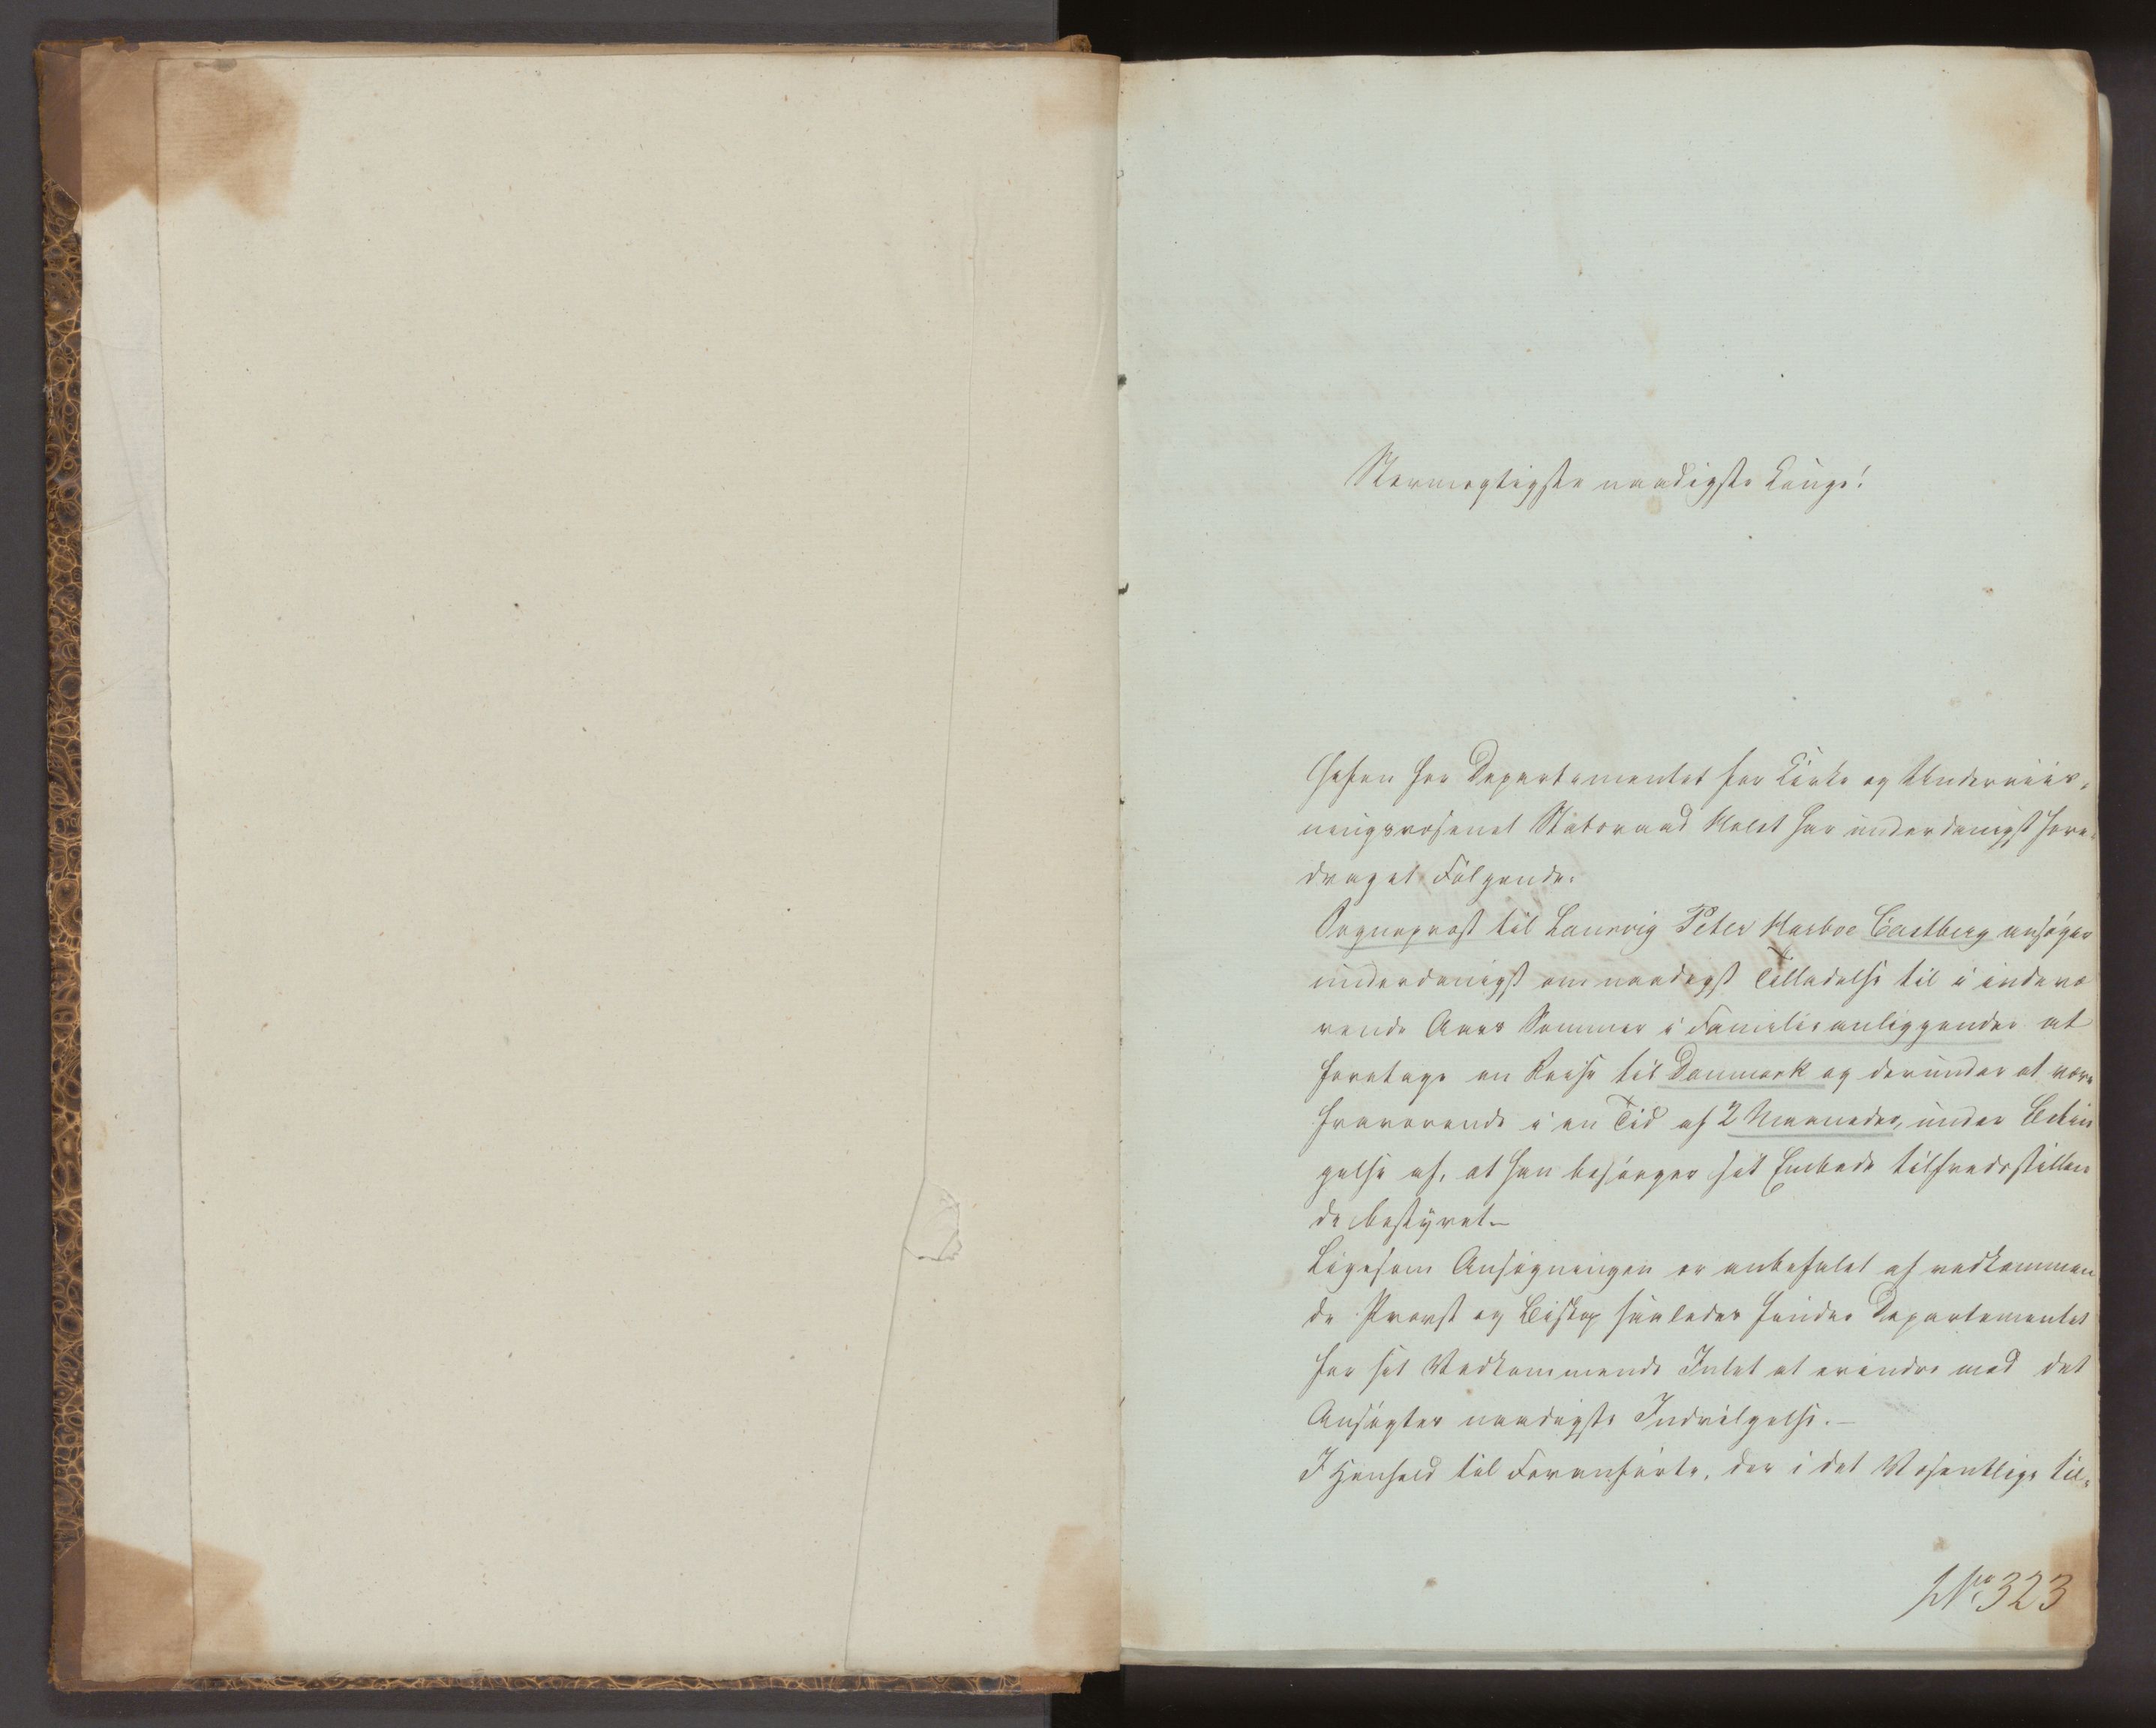 Stormægtigste naadigste Konge!
Chefen for Departementet for Kirke og Underviis-
ningsvæsenet Statsraad Holst har underdanigst fore-
draget Følgende:
Sognepræst til Laurvig Peter Harboe Castberg ansøger
underdanigst om naadigst Tilladelse til i indevæ
rende Aars Sommer i Familieanliggender at
foretage en Reise til Danmark og derunder at være
fraværende i en Tid af 2 Maaneder, under Betin
gelse af, at han besørger sit Embede tilfredsstillen
de bestyret.-
Ligesom Ansøgningen er anbefalet af vedkommen
de Provst og Biskop saaledes finder Departementet
for sit Vedkommende Intet at erindre mod det
Ansøgtes naadigste Indvilgelse.-
I Henhold til Foranførte, der i det Væsentlige til-
No 323